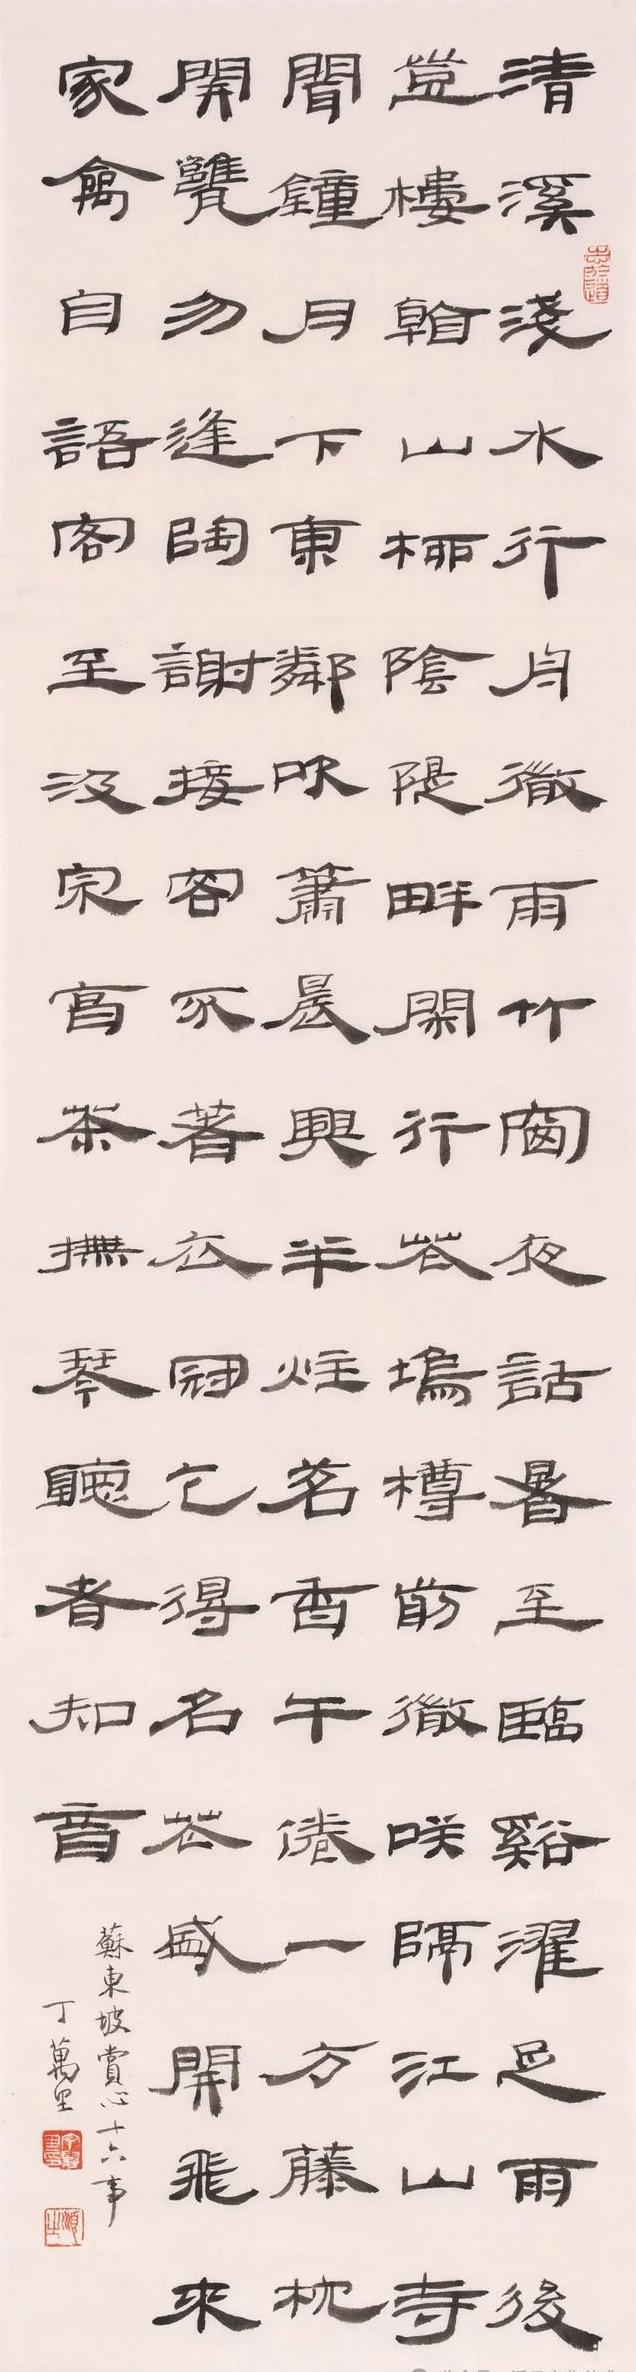 清溪淺水行舟微雨竹窗夜話暑至臨谿濯足雨後
登樓看山柳陰隄畔閑行花塢樽前微咲隔江山寺
聞鐘月下東鄰吹簫晨興半炷茗香午倦一方藤枕
開甕勿逢陶謝接客不著衣冠乞得名花盛開飛來
家禽自語客至汲泉烹茶撫琴聽者知音
蘇東坡賞心十六事
丁萬里